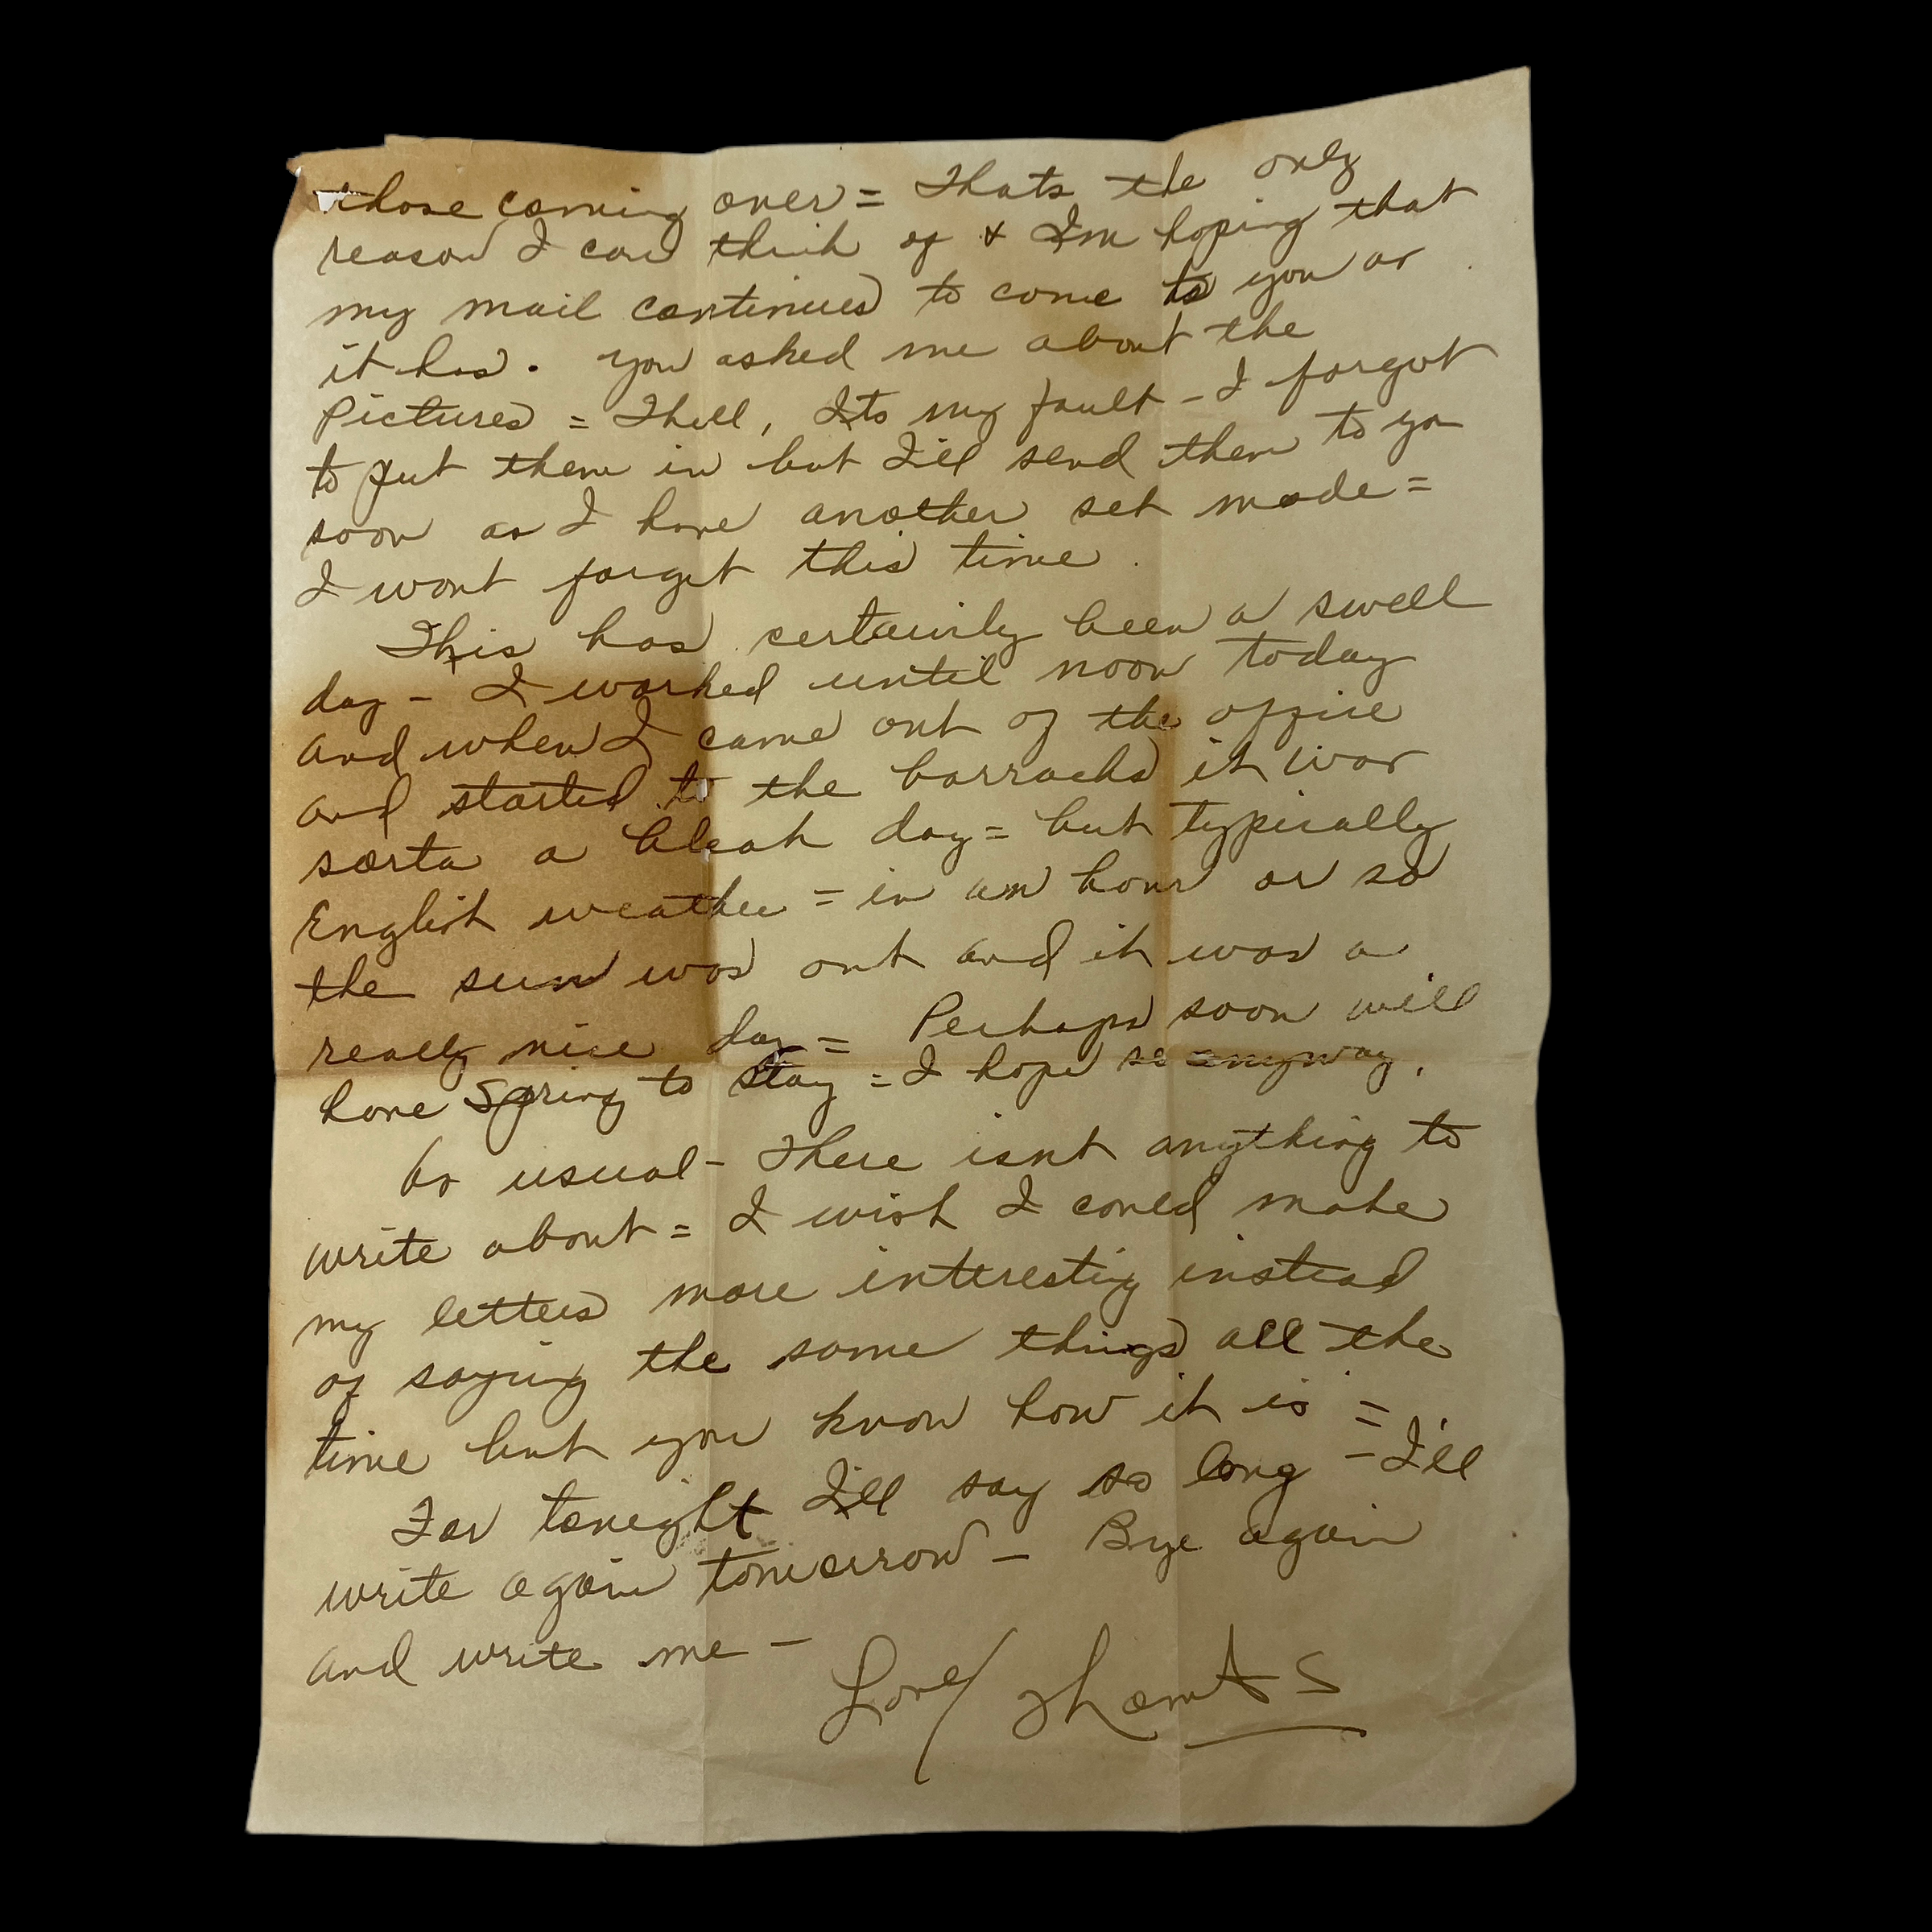 those coming over = Thats the only
reason I can think of & Im hoping that
my mail continues to come to you as
it has. You asked me about the
Pictures = Thell, Its my fault - I forgot
to put them in but I'll send them to you
soon as I have another set made =
I wont forget this time.
This has certainly been a swell
day - I worked until noon today
and when I came out of the office
and started to the barracks it was
sorta a bleak day = but typically
English weather = in an hour or so
the sun was out and it was a
really nice day = Perhaps soon will
have Spring to stay = I hope so anyway.
As usual - There isnt anything to
write about = I wish I could make
my letters more interesting instead
of saying the same things all the
time but you know how it is =
For tonight I'll say so long - I'll
write again tomorrow - Bye again
and write me -
Love